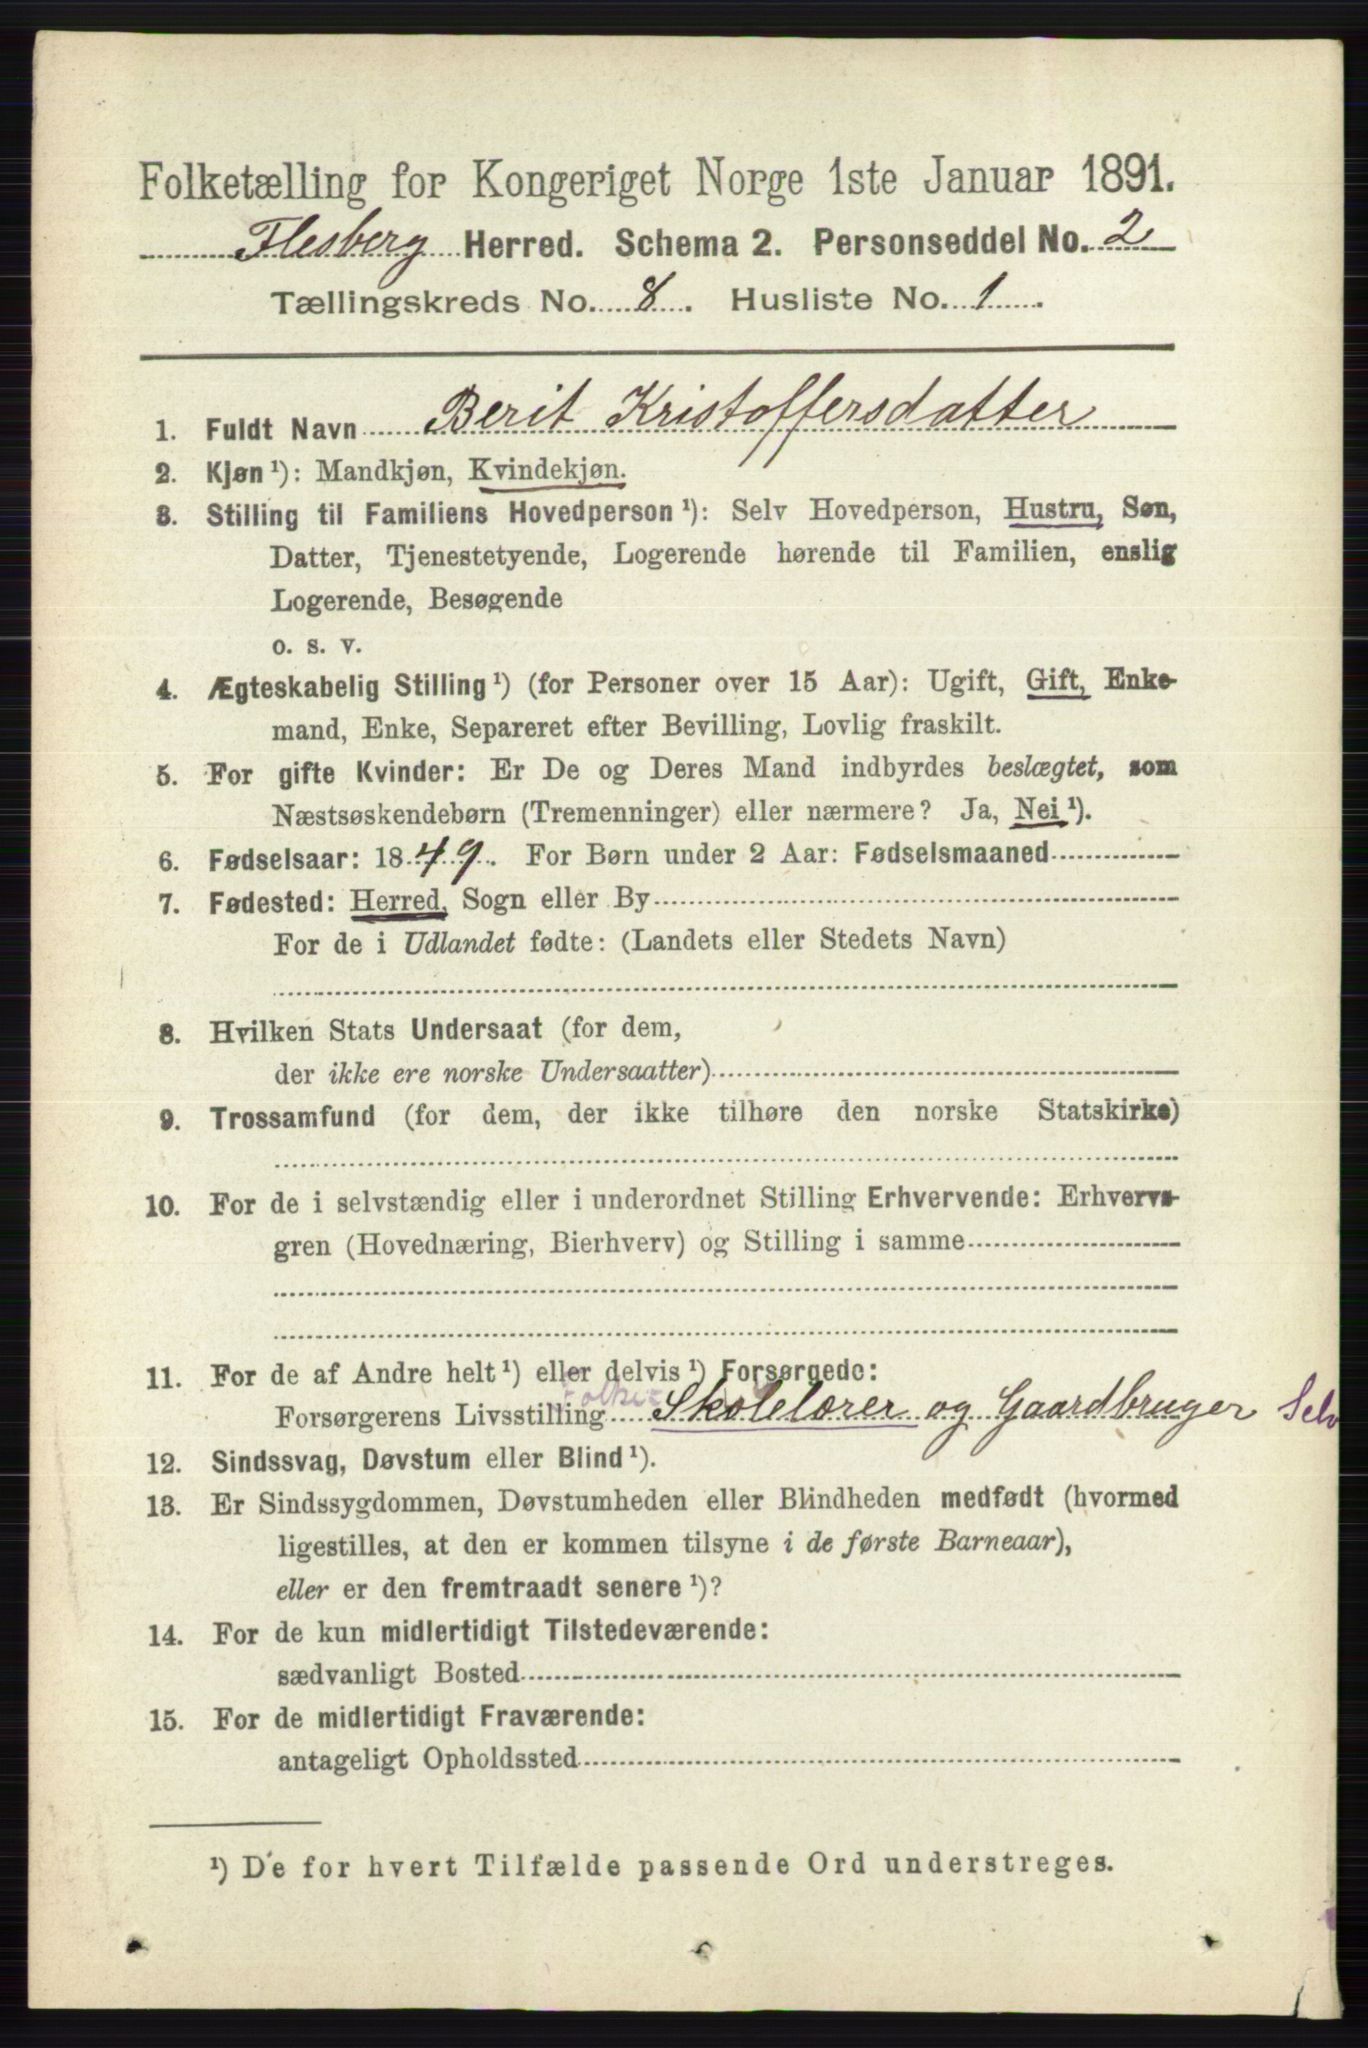 Folketælling for Kongeriget Norge 1ste Januar 1891.
Flesberg Herred. Schema 2. Personseddel No. 2
Tællingskreds No. 8. Husliste No. 1.
1. Fuldt Navn Berit Kristoffersdatter
2. Kjøn ¹): Mandkjøn, Kvindekjøn.
3. Stilling til Familiens Hovedperson ¹): Selv Hovedperson, Hustru, Søn,
Datter, Tjenestetyende, Logerende hørende til Familien, enslig
Logerende, Besøgende
o. s. v.
4. Ægteskabelig Stilling ¹) (for Personer over 15 Aar): Ugift, Gift, Enke-
mand, Enke, Separeret efter Bevilling, Lovlig fraskilt.
5. For gifte Kvinder: Er De og Deres Mand indbyrdes beslægtet, som
Næstsøskendebørn (Tremenninger) eller nærmere? Ja, Nei ¹).
6. Fødselsaar: 1849. For Børn under 2 Aar: Fødselsmaaned
7. Fødested: Herred, Sogn eller By
For de i Udlandet fødte: (Landets eller Stedets Navn)
8. Hvilken Stats Undersaat (for dem,
der ikke ere norske Undersaatter)
9. Trossamfund (for dem, der ikke tilhøre den norske Statskirke)
10. For de i selvstændig eller i underordnet Stilling Erhvervende: Erhvervs-
gren (Hovednæring, Bierhverv) og Stilling i samme
11. For de af Andre helt ¹) eller delvis ¹) Forsørgede:
Folke
Forsørgerens Livsstilling Skolelærer og Gaardbruger Selv
12. Sindssvag, Døvstum eller Blind ¹).
13. Er Sindssygdommen, Døvstumheden eller Blindheden medfødt (hvormed
ligestilles, at den er kommen tilsyne i de første Barneaar),
eller er den fremtraadt senere ¹)?
14. For de kun midlertidigt Tilstedeværende:
sædvanligt Bosted
15. For de midlertidigt Fraværende:
antageligt Opholdssted
¹) De for hvert Tilfælde passende Ord understreges.